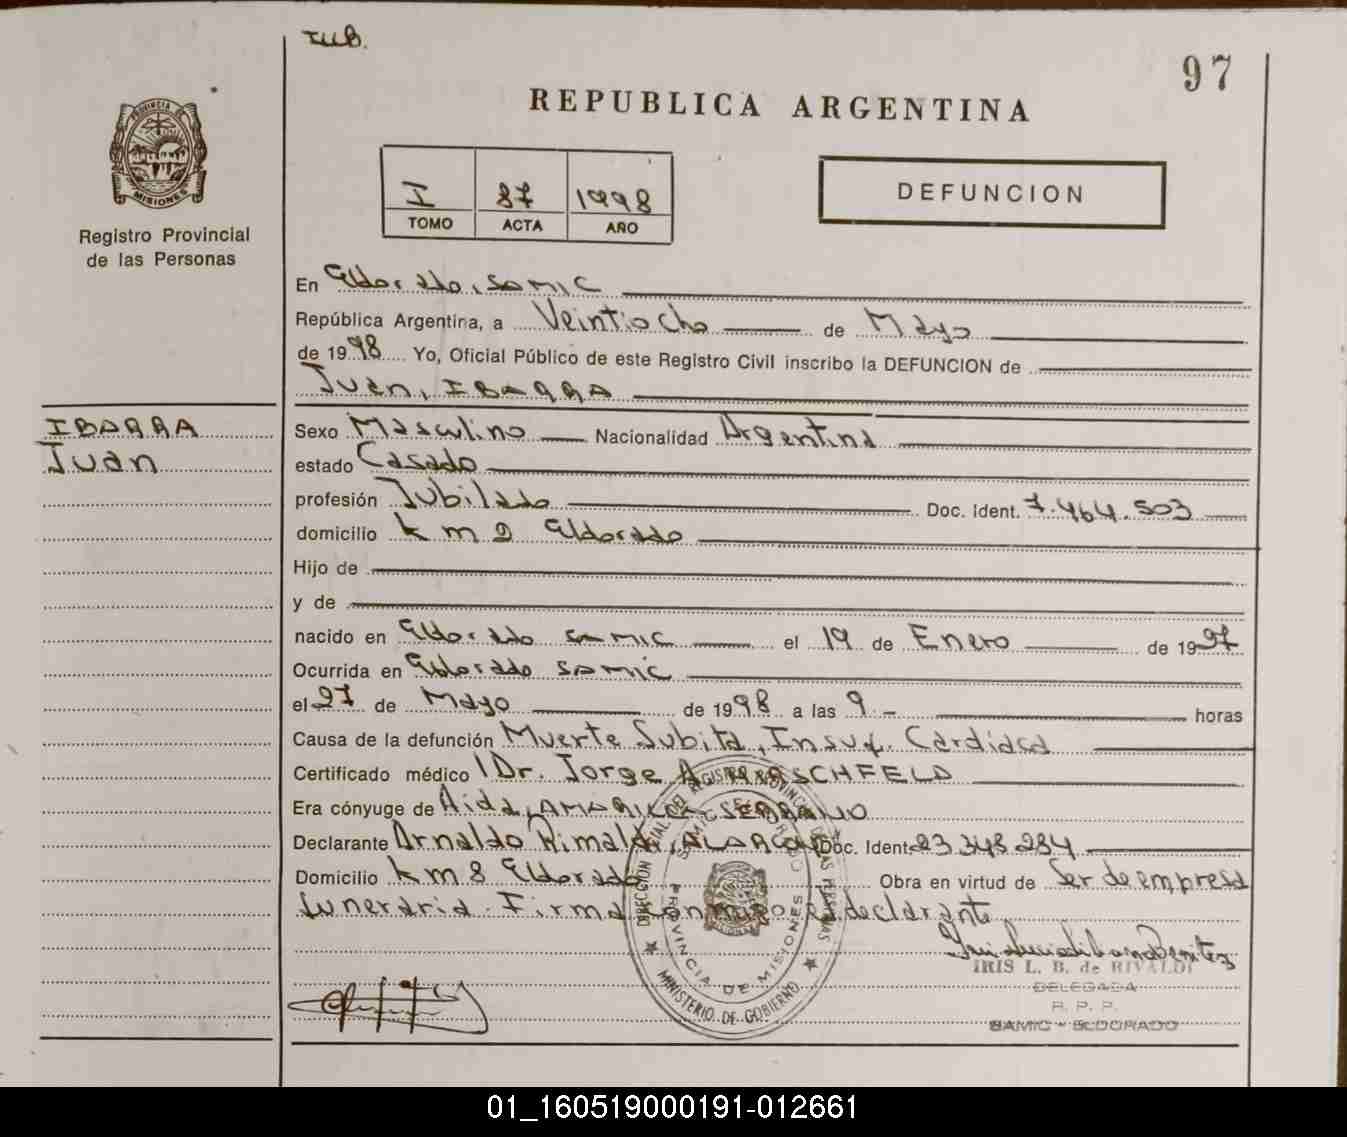 IUB.
97
REPUBLICA ARGENTINA
I 87 1998
TOMO ACTA AÑO
DEFUNCION
PROVINCIA DE MISIONES
Registro Provincial
de las Personas
IBARRA
Juan
En Eldorado, SAMIC
República Argentina, a Veintiocho de Mayo
de 1998 Yo, Oficial Público de este Registro Civil inscribo la DEFUNCION de
Juan, IBARRA
Sexo Masculino Nacionalidad Argentina
estado Casado
profesión Jubilado Doc. Ident. 7.464.503
domicilio km 9 Eldorado
Hijo de
y de
nacido en Eldorado SAMIC el 19 de Enero de 1997
Ocurrida en Eldorado SAMIC
el 27 de Mayo de 1998 a las 9 horas
Causa de la defunción Muerte Subita, Insuf. Cardiaca
Certificado médico Dr. Jorge A. HIRSCHFELD
Era cónyuge de Aida, AMARILLA SERRANO
Declarante Arnaldo Rimaldo, ALARCON Doc. Ident. 23.343.284
Domicilio km 8 Eldorado Obra en virtud de Ser de empresa
funeraria. Firma conmigo el declarante.
IRIS L. B. de RIVALDI
DELEGADA
R. P. P.
SAMIC - ELDORADO
DIRECCION GRAL DEL REGISTRO PROVINCIAL DE LAS PERSONAS
MINISTERIO DE GOBIERNO
SAMIC ELDORADO
PROVINCIA DE MISIONES
01_160519000191-012661